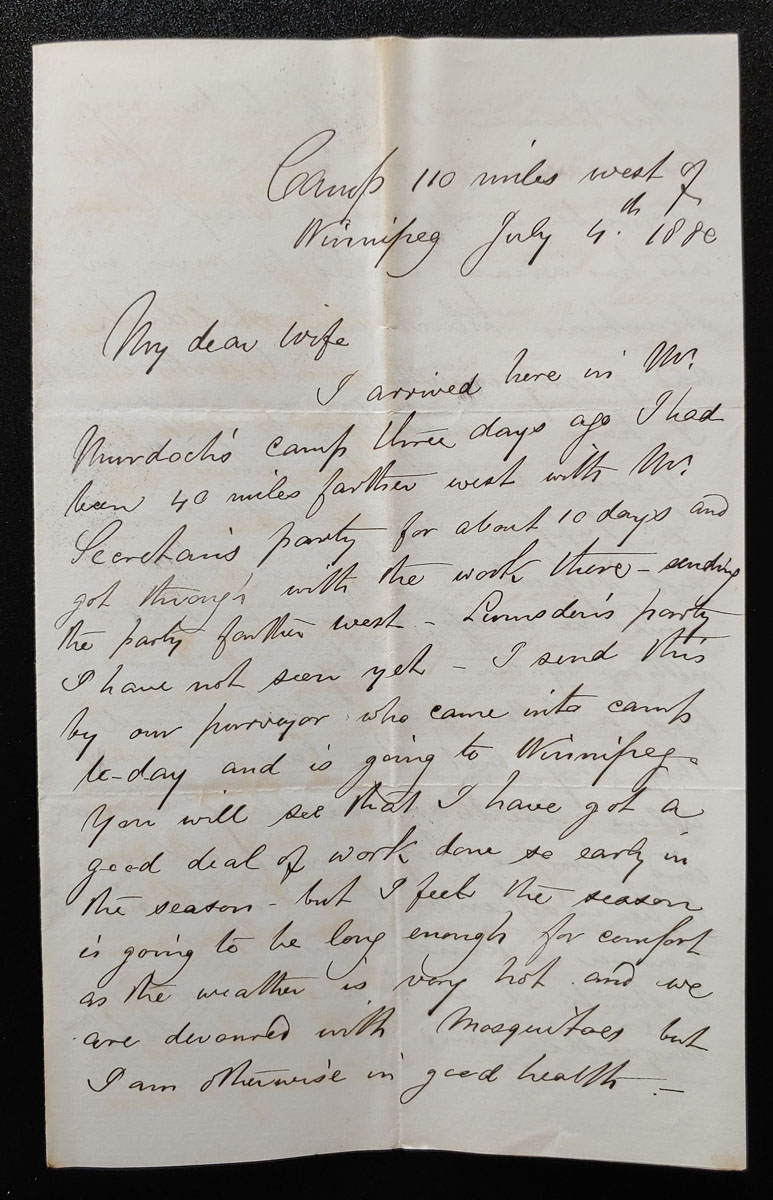 Camp 110 miles west of
Winnipeg July 4.th 1880
My dear wife
I arrived here in Mr.
Murdoch's camp three days ago I had
been 40 miles farther west with Mr.
Secretan's party for about 10 days and
got through with the work there - sending
the party farther west - Lumsden's party
I have not seen yet - I send this
by our purveyor who came into camp
to-day and is going to Winnipeg.
You will see that I have got a
good deal of work done so early in
the season - but I feel the season
is going to be long enough for comfort
as the weather is very hot and we
are devoured with Mosquitoes but
I am otherwise in good health. -